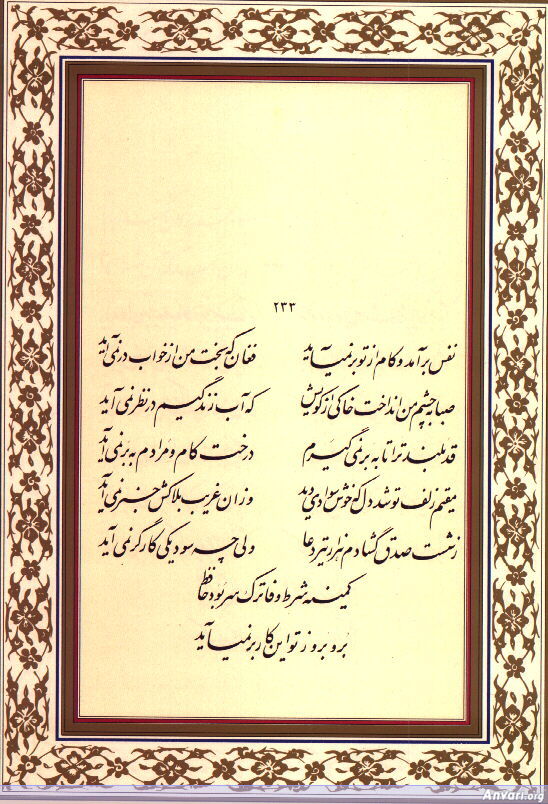 ۲۳۳
نفس برآمد و کام از تو بر نمیآید    فغان که بخت من از خواب در نمی آید
صبا بچشم من انداخت خاکی از کویش    که آب زندگیم در نظر نمی آید
قد بلند ترا تا به بر نمی گیرم    درخت کام و مرادم به بر نمی آید
مقیم زلف تو شد دل که خوش سوادی دید    وزان غریب بلاکش خبر نمی آید
ز شست صدق گشادم هزار تیر دعا    ولی چه سود یکی کارگر نمی آید
کمینه شرط وفا ترک سر بود حافظ
برو برو ز تو این کار بر نمیآید
Anvari.org